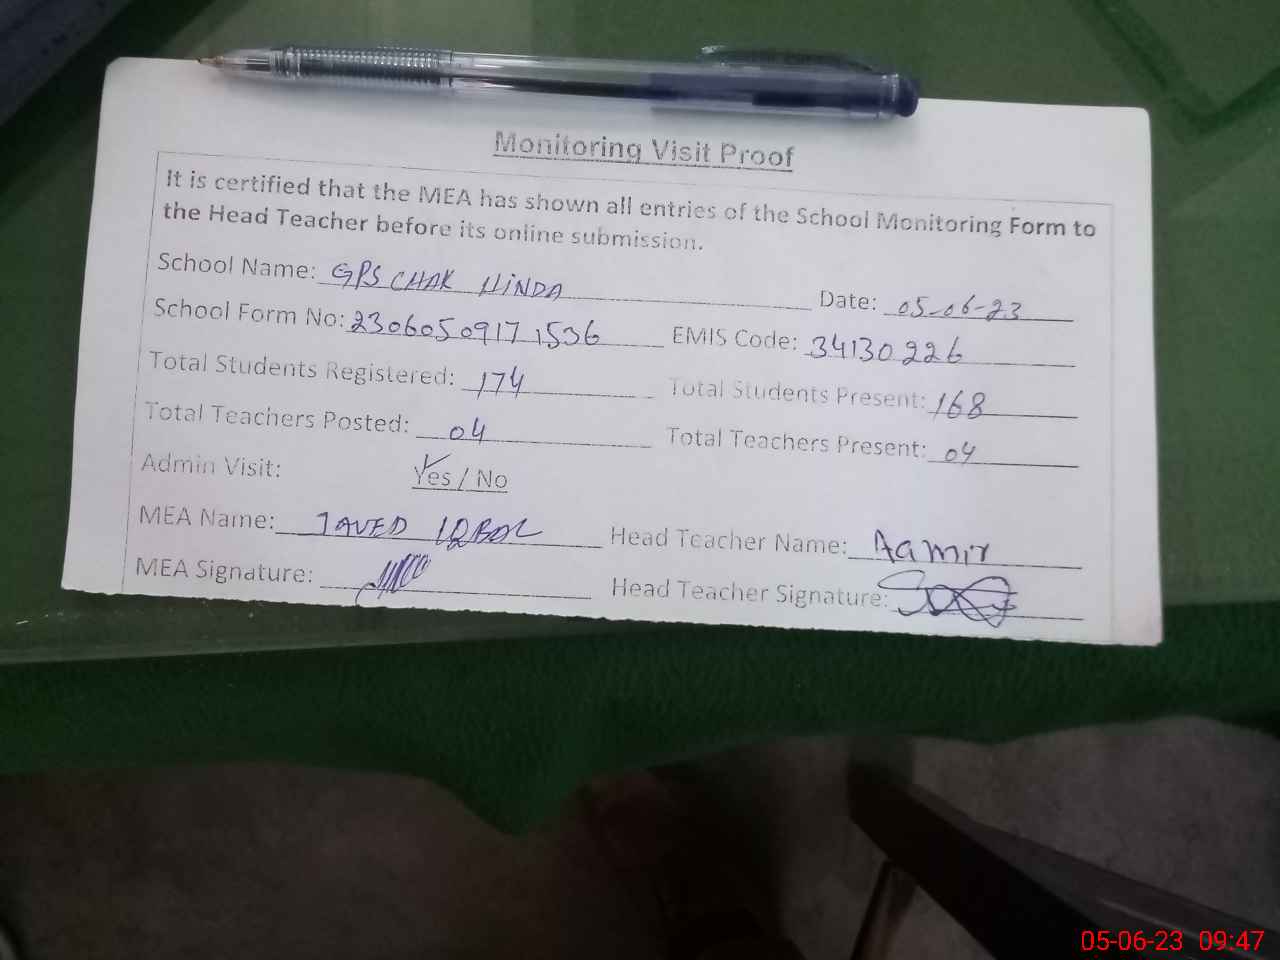 Monitoring Visit Proof
It is certified that the MEA has shown all entries of the School Monitoring Form to
the Head Teacher before its online submission.
School Name: GPS CHAK HINDA Date: 05-06-23
School Form No: 2306050917 1536 EMIS Code: 34130226
Total Students Registered: 174 Total Students Present: 168
Total Teachers Posted: 04 Total Teachers Present: 04
Admin Visit: Yes / No
MEA Name: JAVED IQBAL Head Teacher Name: Aamir
MEA Signature: Head Teacher Signature:
05-06-23 09:47